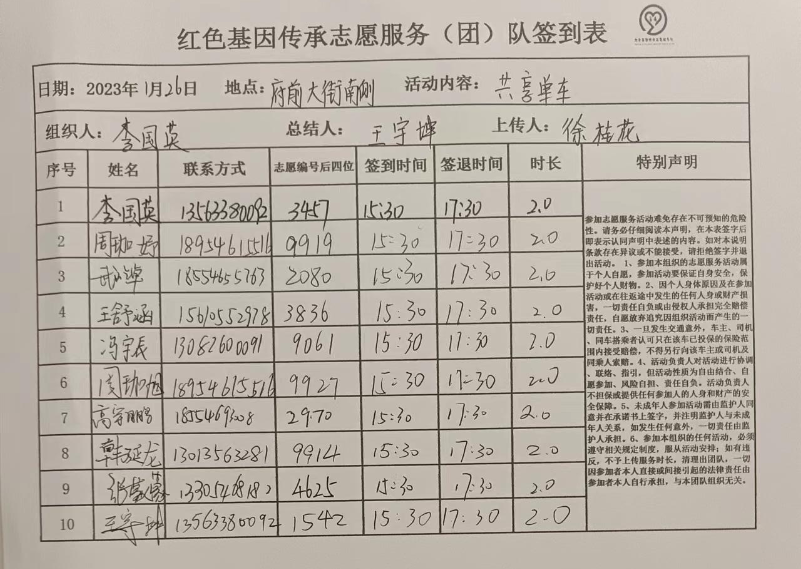 红色基因传承志愿服务（团）队签到表
日期：2023年1月26日 地点：府前大街南侧 活动内容：共享单车
组织人：李国英 总结人：王宇坤 上传人：徐桂花
序号 姓名 联系方式 志愿编号后四位 签到时间 签退时间 时长 特别声明
1 李国英 13563380092 3457 15:30 17:30 2.0
2 周珈妤 18954615516 9919 15:30 17:30 2.0
3 18554655763 2080 15:30 17:30 2.0
4 王舒涵 15610552978 3836 15:30 17:30 2.0
5 冯宇辰 13082600091 9061 15:30 17:30 2.0
6 周珈旭 18954615516 9927 15:30 17:30 2.0
7 2970 15:30 17:30 2.0
8 韩延龙 13013563281 9914 15:30 17:30 2.0
9 4625 15:30 17:30 2.0
10 13563380092 1542 15:30 17:30 2.0
参加志愿服务活动难免存在不可预知的危险
性。请务必仔细阅读本声明，在本表签字后
即表示认同声明中表述的内容。如对本说明
条款存在异议或不能接受，请拒绝签字并退
出活动。1、参加本组织的志愿服务活动属
于个人自愿。参加活动要保证自身安全，保
护好个人财物。2、因个人身体原因及在参加
活动或在往返途中发生的任何人身或财产损
害，一切责任自负或由侵权人承担完全赔偿
责任。自愿放弃追究因组织活动而产生的一
切责任。3、一旦发生交通意外，车主、司机
、同车搭乘者认可只在该车已投保的保险范
围内接受赔偿，不得另行向该车主或司机及
同乘人索赔。4、活动负责人对活动进行协调
、联络、指引，但活动性质为自由结合、自
愿参加、风险自担、责任自负。活动负责人
不担保或提供任何参加人的人身和财产的安
全保障。5、未成年人参加活动需由监护人同
意并在承诺书上签字，并注明监护人与未成
年人关系，如发生任何意外，一切责任由监
护人承担。6、参加本组织的任何活动，必须
遵守相关规定制度，服从活动安排；如有违
反，不予上传服务时长，清理出团队，一切
因参加者本人直接或间接引起的法律责任由
参加者本人自行承担，与本团队组织无关。